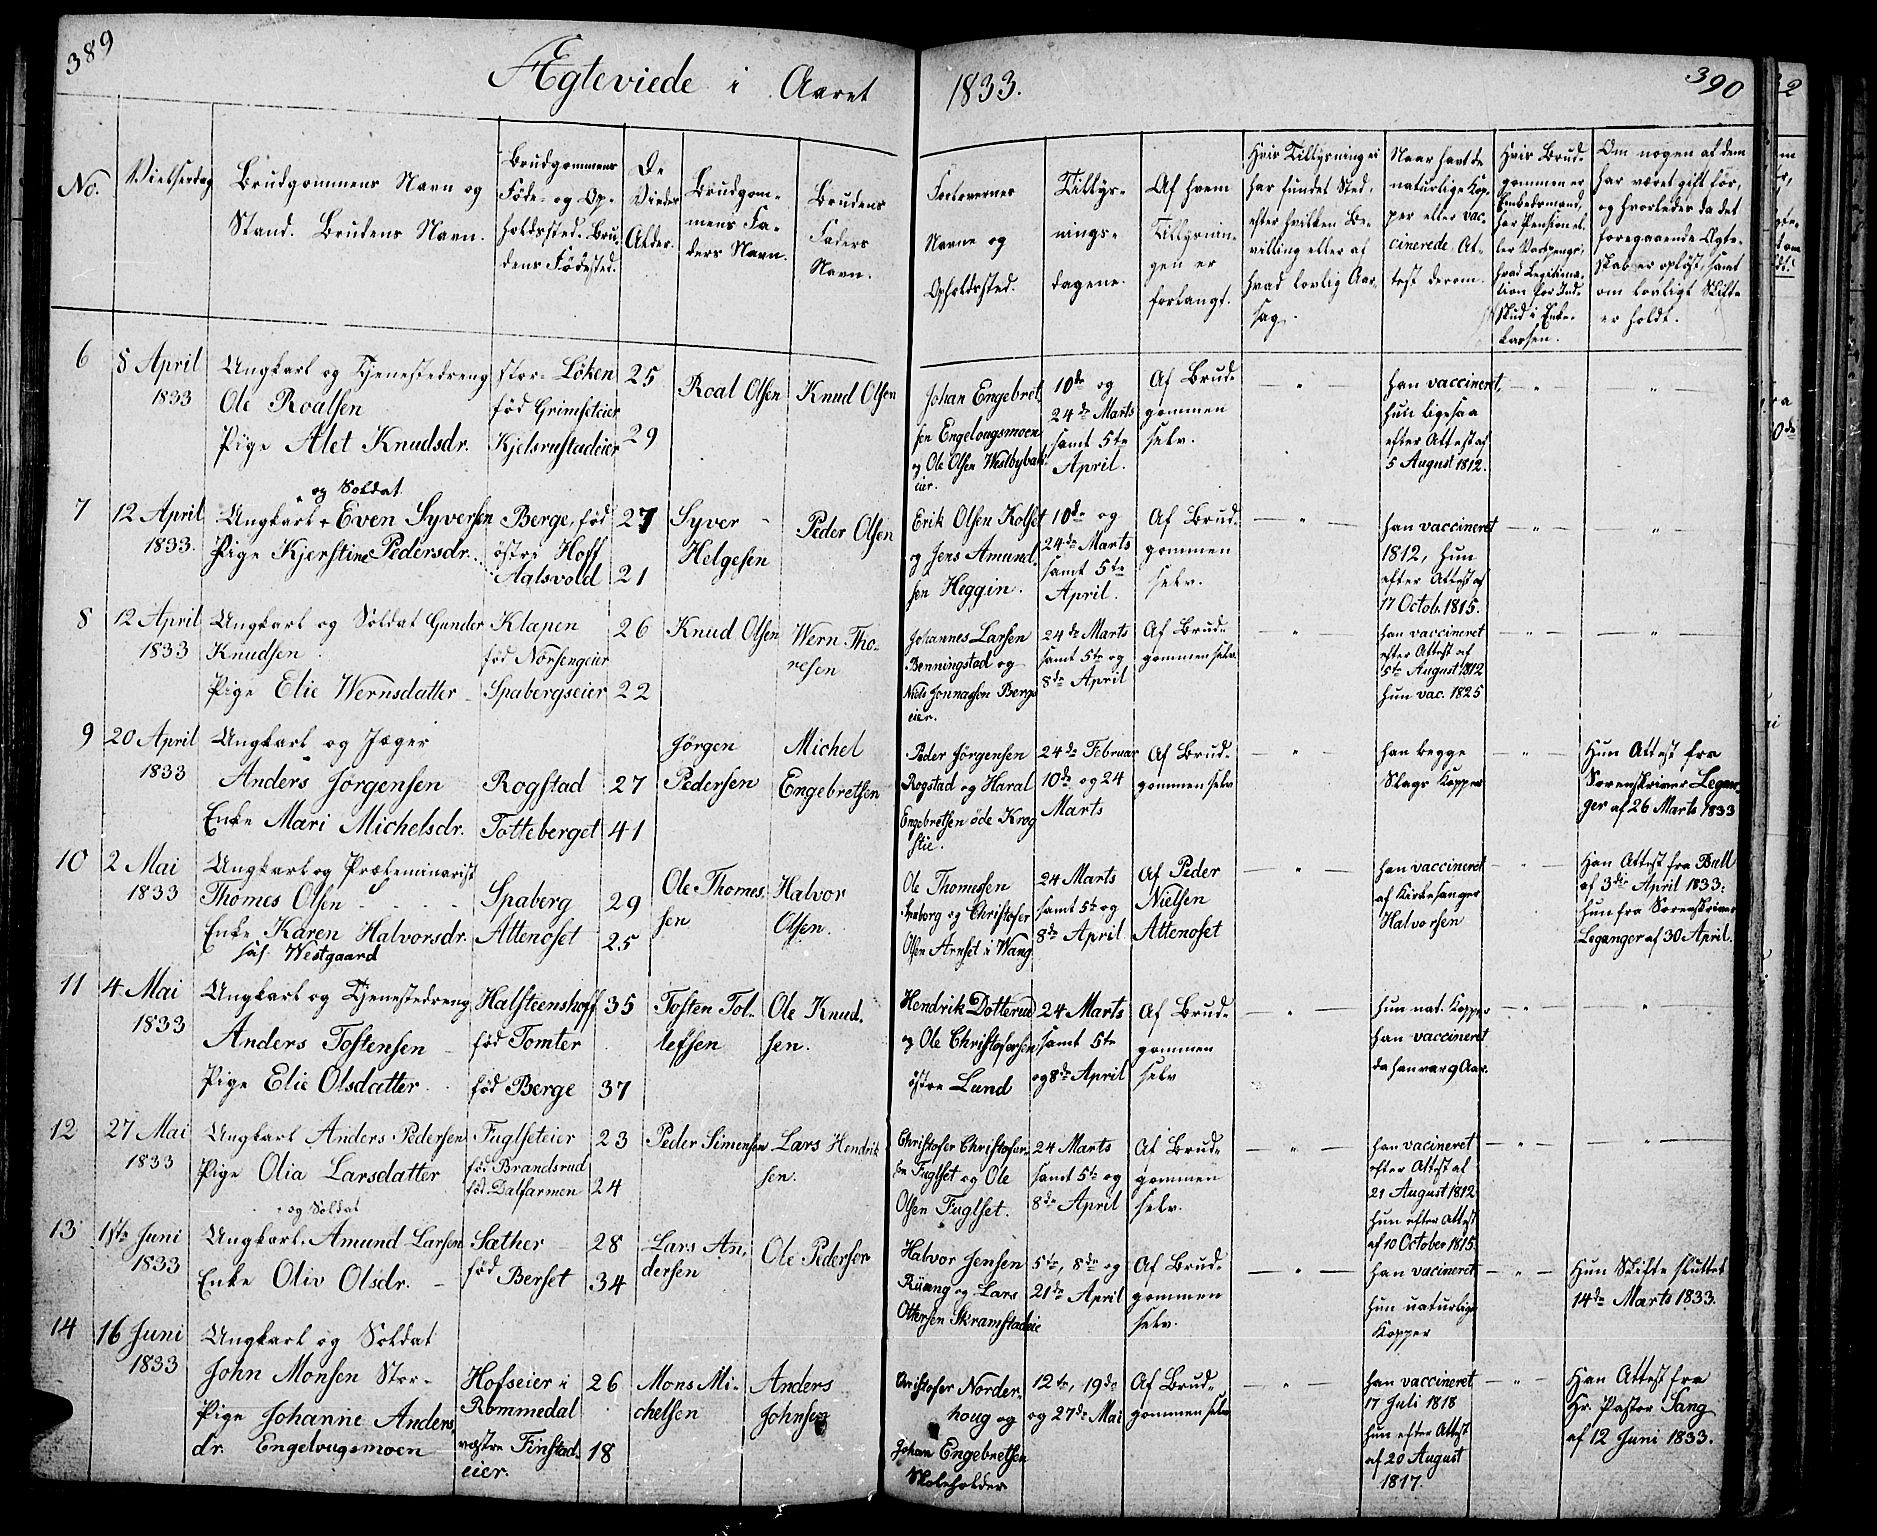 389
Ægteviede i Aaret
1833.
390
No.
Vielsesdag
Brudgommens Navn og
Stand. Brudens Navn.
Brudgommens
Føde- og Op-
holdssted. Bru-
dens Fødested.
De
Viedes
Alder.
Brudgom-
mens Fa-
ders Navn.
Brudens
Faders
Navn.
Forlovernes
Navne og
Opholdssted.
Tillys-
nings-
dagene.
Af hvem
Tillysnin-
gen er
forlangt.
Hvis Tillysning ei
har fundet Sted,
efter hvilken Be-
villing eller af
hvad lovlig Aar-
sag.
Naar havt de
naturlige Kop-
per eller vac-
cinerede. At-
test derom.
Hvis Brud-
gommen er
Embedsmand,
har Pension el-
ler Vartpenge,
hvad Legitima-
tion for Ind-
skud i Enke-
kassen.
Om nogen af dem
har været gift før,
og hvorledes da det
foregaaende Ægte-
skab er opløst, samt
om lovligt Skifte
er holdt.
6
8 April
1833
Ungkarl og Tjenestedreng
Ole Roalsen
Pige Alet Knudsdr.
stor-Löken
fød Grimseteier
Kjelsrustadeier
25
29
Roal Olsen
Knud Olsen
Johan Engebret-
sen Engelougsmoen
og Ole Olsen Westbybak-
eier.
10de og
24de Marts
samt 5te
April.
Af Brud-
gommen
selv.
han vaccineret,
hun ligesaa
efter Attest af
5 August 1812.
7
12 April
1833.
og Soldat
Ungkarl Even Syversen
Pige Kjerstine Pedersdr.
Berge, fød
östre Hoff
Aglsvold
27
21
Syver
Helgesen
Peder Olsen
Erik Olsen Kolset
og Jens Amund-
sen Heggin.
10de og
24de Marts
samt 5te
April.
Af Brud-
gommen
selv.
han vaccineret
1812, hun
efter Attest af
17 Octob. 1815.
8
12 April
1833
Ungkarl og Soldat Gunder
Knudsen
Pige Elie Wernsdatter
Klapen
fød Norsengeier
Spabergseier
26
22
Knud Olsen
Wern Tho-
resen
Johannes Larsen
Benningstad og
Niels Jonnason Berge
eier.
24de Marts
samt 5te og
8de April
Af Brud-
gommen selv
han vaccineret
efter Attest af
5te August 1812
hun vac. 1825
9
20 April
1833
Ungkarl og Jæger
Anders Jörgensen
Enke Mari Michelsdr.
Rogstad
Totteberget
27
41
Jörgen
Pedersen
Michel
Engebretsen
Peder Jörgensen
Rogstad og Haral
Engebretsen öde Krog
stie.
24de Februar
10de og 24
Marts
Af Brud-
gommen selv
han begge
Slags Kopper
Hun Attest fra
Sorenskriver Legan-
ger af 26 Marts 1833
10
2 Mai
1833
Ungkarl og Præleminarist
Thomes Olsen
Enke Karen Halvorsdr.
Westgaard
Spaberg
Attenoset
29
25
Ole Thomes-
sen
Halvor
Olsen.
Ole Thomessen
og Christofer
Olsen Arnset i Wang
24 Marts
samt 5te og
8de April
Af Peder
Nielsen
Attenoset
han vaccineret
af Kirkesanger
Halvorsen
Han Attest fra Bull
af 3die April 1833.
Hun fra Sorenskriver
Leganger af 30 April.
11
4 Mai
1833
Ungkarl og Tjenestedreng
Anders Tostensen
Pige Elie Olsdatter
Halsteenshoff
fød Tomter
fød Berge
35
37
Tosten Tol-
lefsen
Ole Knud-
sen.
Hendrik Dotterud
og Ole Christofersen
östre Lund
24 Marts
samt 5te
og 8de April
Af Brud-
gommen
selv
hun nat. Kopper
han vaccineret
da han var 9 Aar.
12
27 Mai
1833
Ungkarl Anders Pedersen
Pige Olia Larsdatter
Fuglseteier
fød Brandsrud
fød Dalfarmen
23
24
Peder Simensen
Lars Hendrik
sen.
Christofer Christofer-
sen Fuglset og Ole
Olsen Fuglset.
24 Marts
samt 5te og
8de April
Af Brud-
gommen
selv.
han vacineret
efter Attest af
21 August 1812
hun efter Attest
af 10 October 1815.
13
1ste Juni
1833
og Soldat
Ungkarl Amund Larsen
Enke Oliv Olsdr.
Sæther
fød Berset
28
34
Lars An-
dersen
Ole Pedersen
Halvor Jensen
Rüang og Lars
Ottersen Skramstadeie
5te, 8de og
21de April
Af Brud-
gommen
selv.
han vacineret
hun naturlige
Kopper
Hun Skifte sluttet
14de Marts 1833.
14
16 Juni
1833
Ungkarl og Soldat
John Monsen Stor-
Pige Johanne Anders
dr. Engelvugsmoen
Hofseier i
Rommedal
vestre Finstad-
eier.
26
18
Mons Mi-
chelsen
Anders
Johnsen
Christofer Norder-
houg og
Johan Engebretsen
Skoleholder
12te, 19de
og 27de Mai
Af Brud-
gommen selv
han vaccineret
17 Juli 1818
hun efter Attest
af 20 August
1817.
Han Attest fra
Hr. Pastor Sang
af 12 Juni 1833.